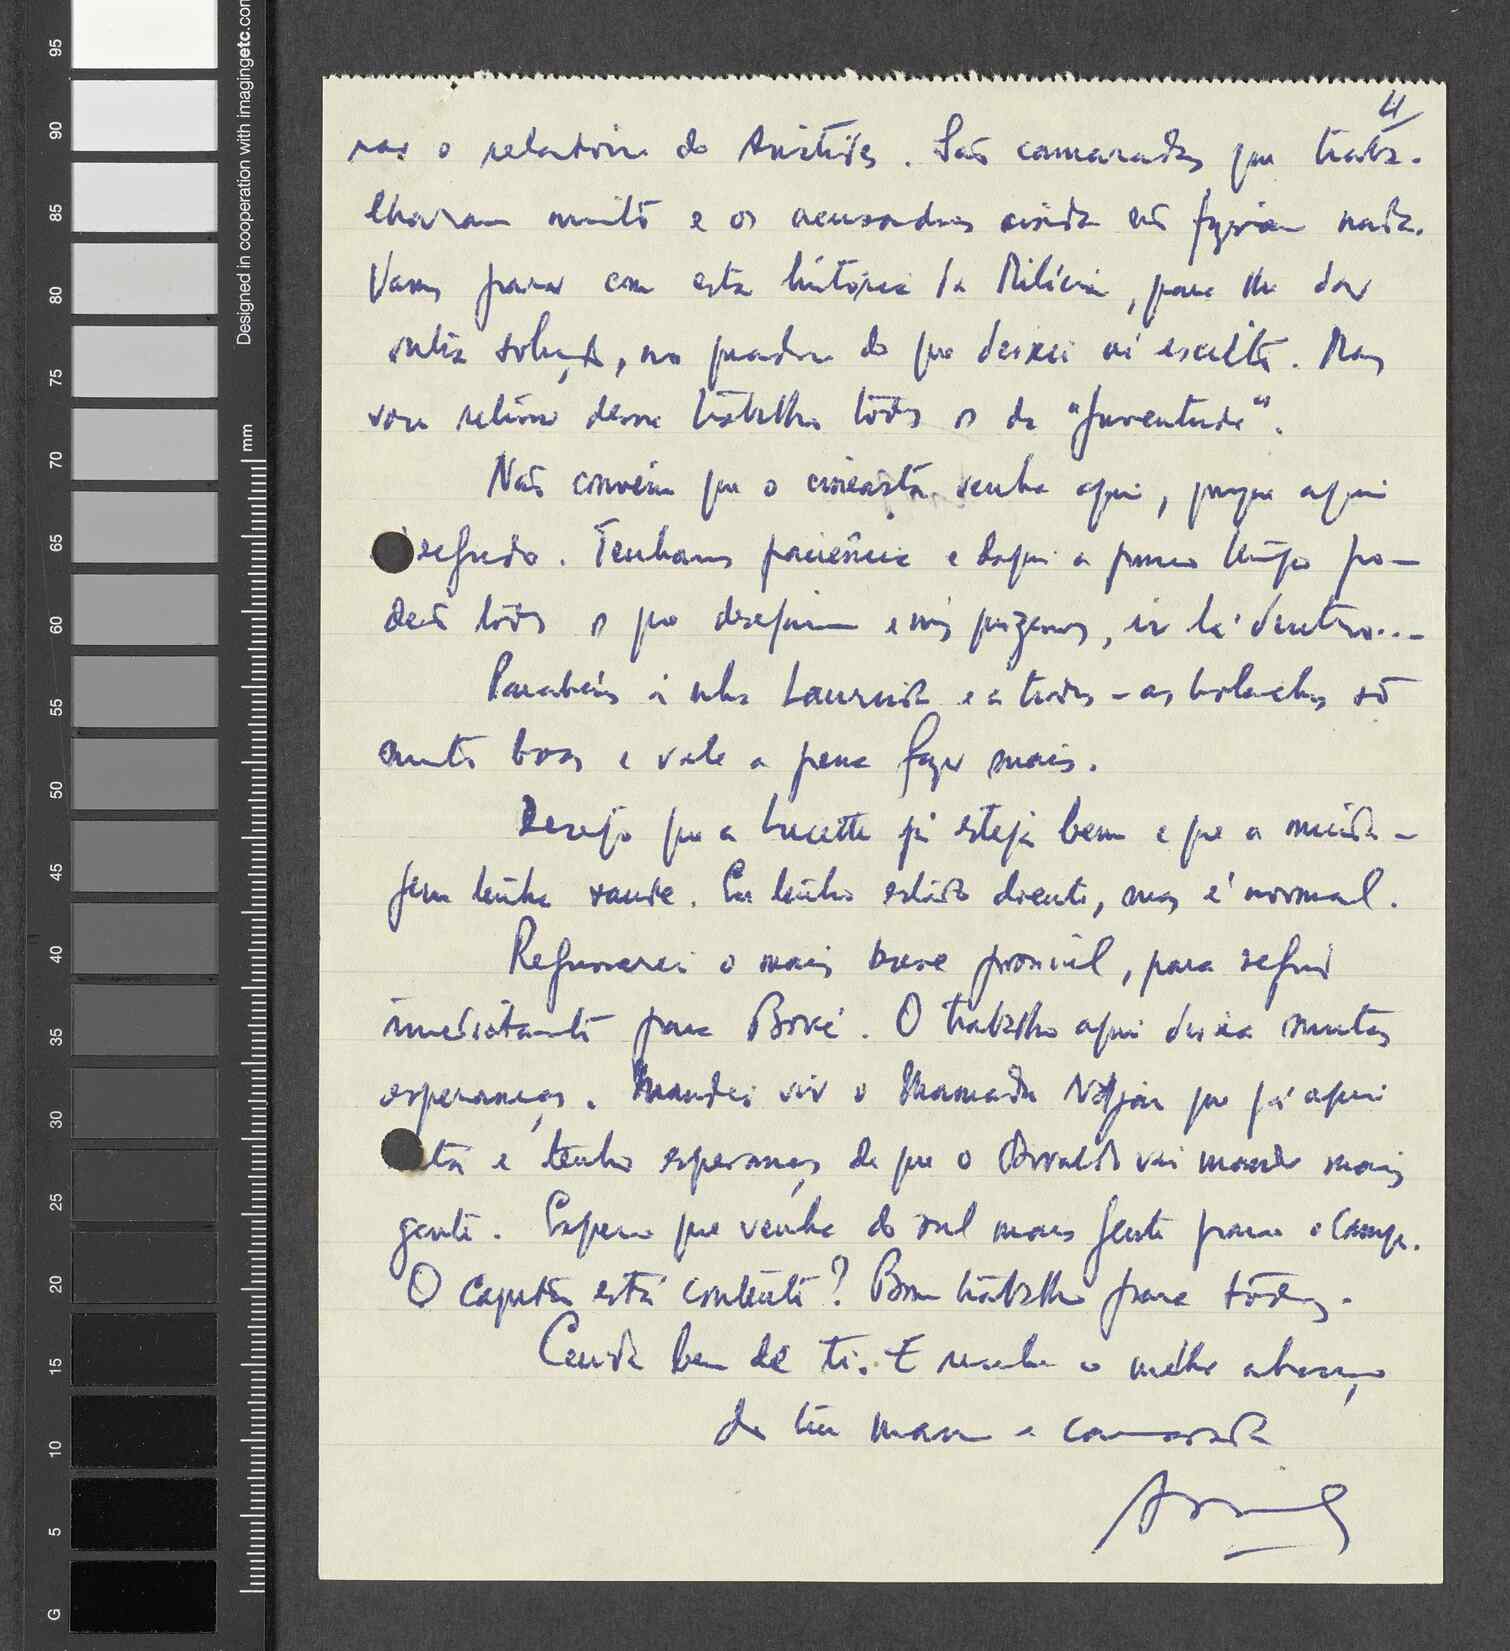 4
o relatório do Aristides. São camaradas que traba-
lharam muito e os acusadores ainda não fizeram nada.
Vamos parar com esta história da Milícia, para lhe dar
outra solução, no quadro do que deixei aí escrito. Mas
vou retirar desse trabalho todos os da "Juventude".
Não convém que o cineasta venha aqui, porque aqui
é segredo. Tenhamos paciência e daqui a pouco tempo po-
derão todos os que desejarem e nós quizermos, ir lá dentro...
Parabéns à Laurinda e a todos - as bolachas são
muito boas e vale a pena fazer mais.
Desejo que a Lucette já esteja bem e que a miuda-
gem tenha saude. Eu tenho estado doente, mas é normal.
Regressarei o mais breve possível, para seguir
imediatamente para Boké. O trabalho aqui deixa muitas
esperanças. Mandei vir o Mamadu Ndjai que já aqui
está e tenho esperanças de que o Osvaldo vai mandar mais
gente. Espero que venha do sul mais gente para o Campo.
O Capután está contente? Bom trabalho para todos.
Cuida bem de ti. E recebe o melhor abraço
do teu mano e camarada
Designed in cooperation with imagingetc.com
mm
95
90
85
80
75
70
65
60
55
50
45
40
35
30
25
20
15
10
5
G